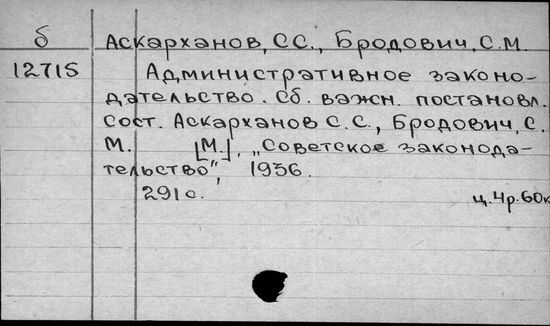 б Аскарханов, С.С., Бродович, С.М.
12715 Административное законо-
дательство. Сб. важн. постановл.
Сост. Аскарханов С.С., Бродович, С.
М. [М.], „Советское законода-
тельство", 1936.
291 с. ц. 4р. 60к